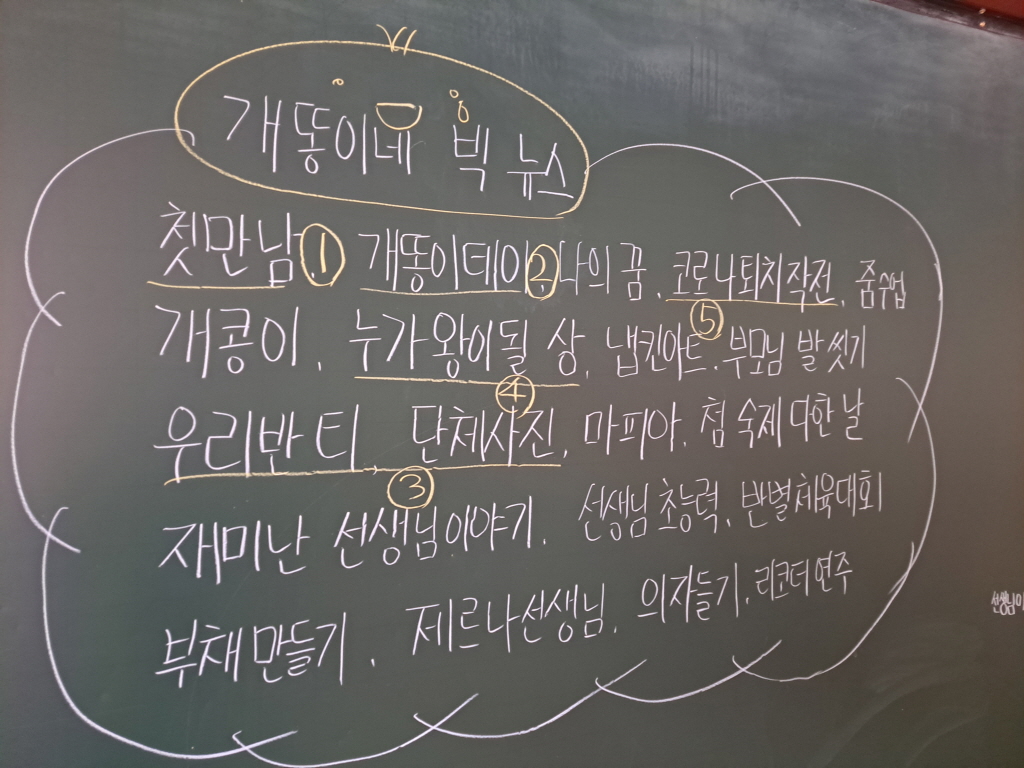 개똥이네 빅 뉴스
첫만남 ① 개똥이데이 ② 나의 꿈, 코로나퇴치작전, 줌수업
⑤
개콩이, 누가 왕이 될 상, 냅킨아트, 부모님 발 씻기
④
우리반 티 단체사진, 마피아, 첨 숙제 다한 날
③
재미난 선생님이야기, 선생님 초능력, 반별체육대회
부채 만들기, 제르나선생님, 의자들기, 리코더 연주
선생님이